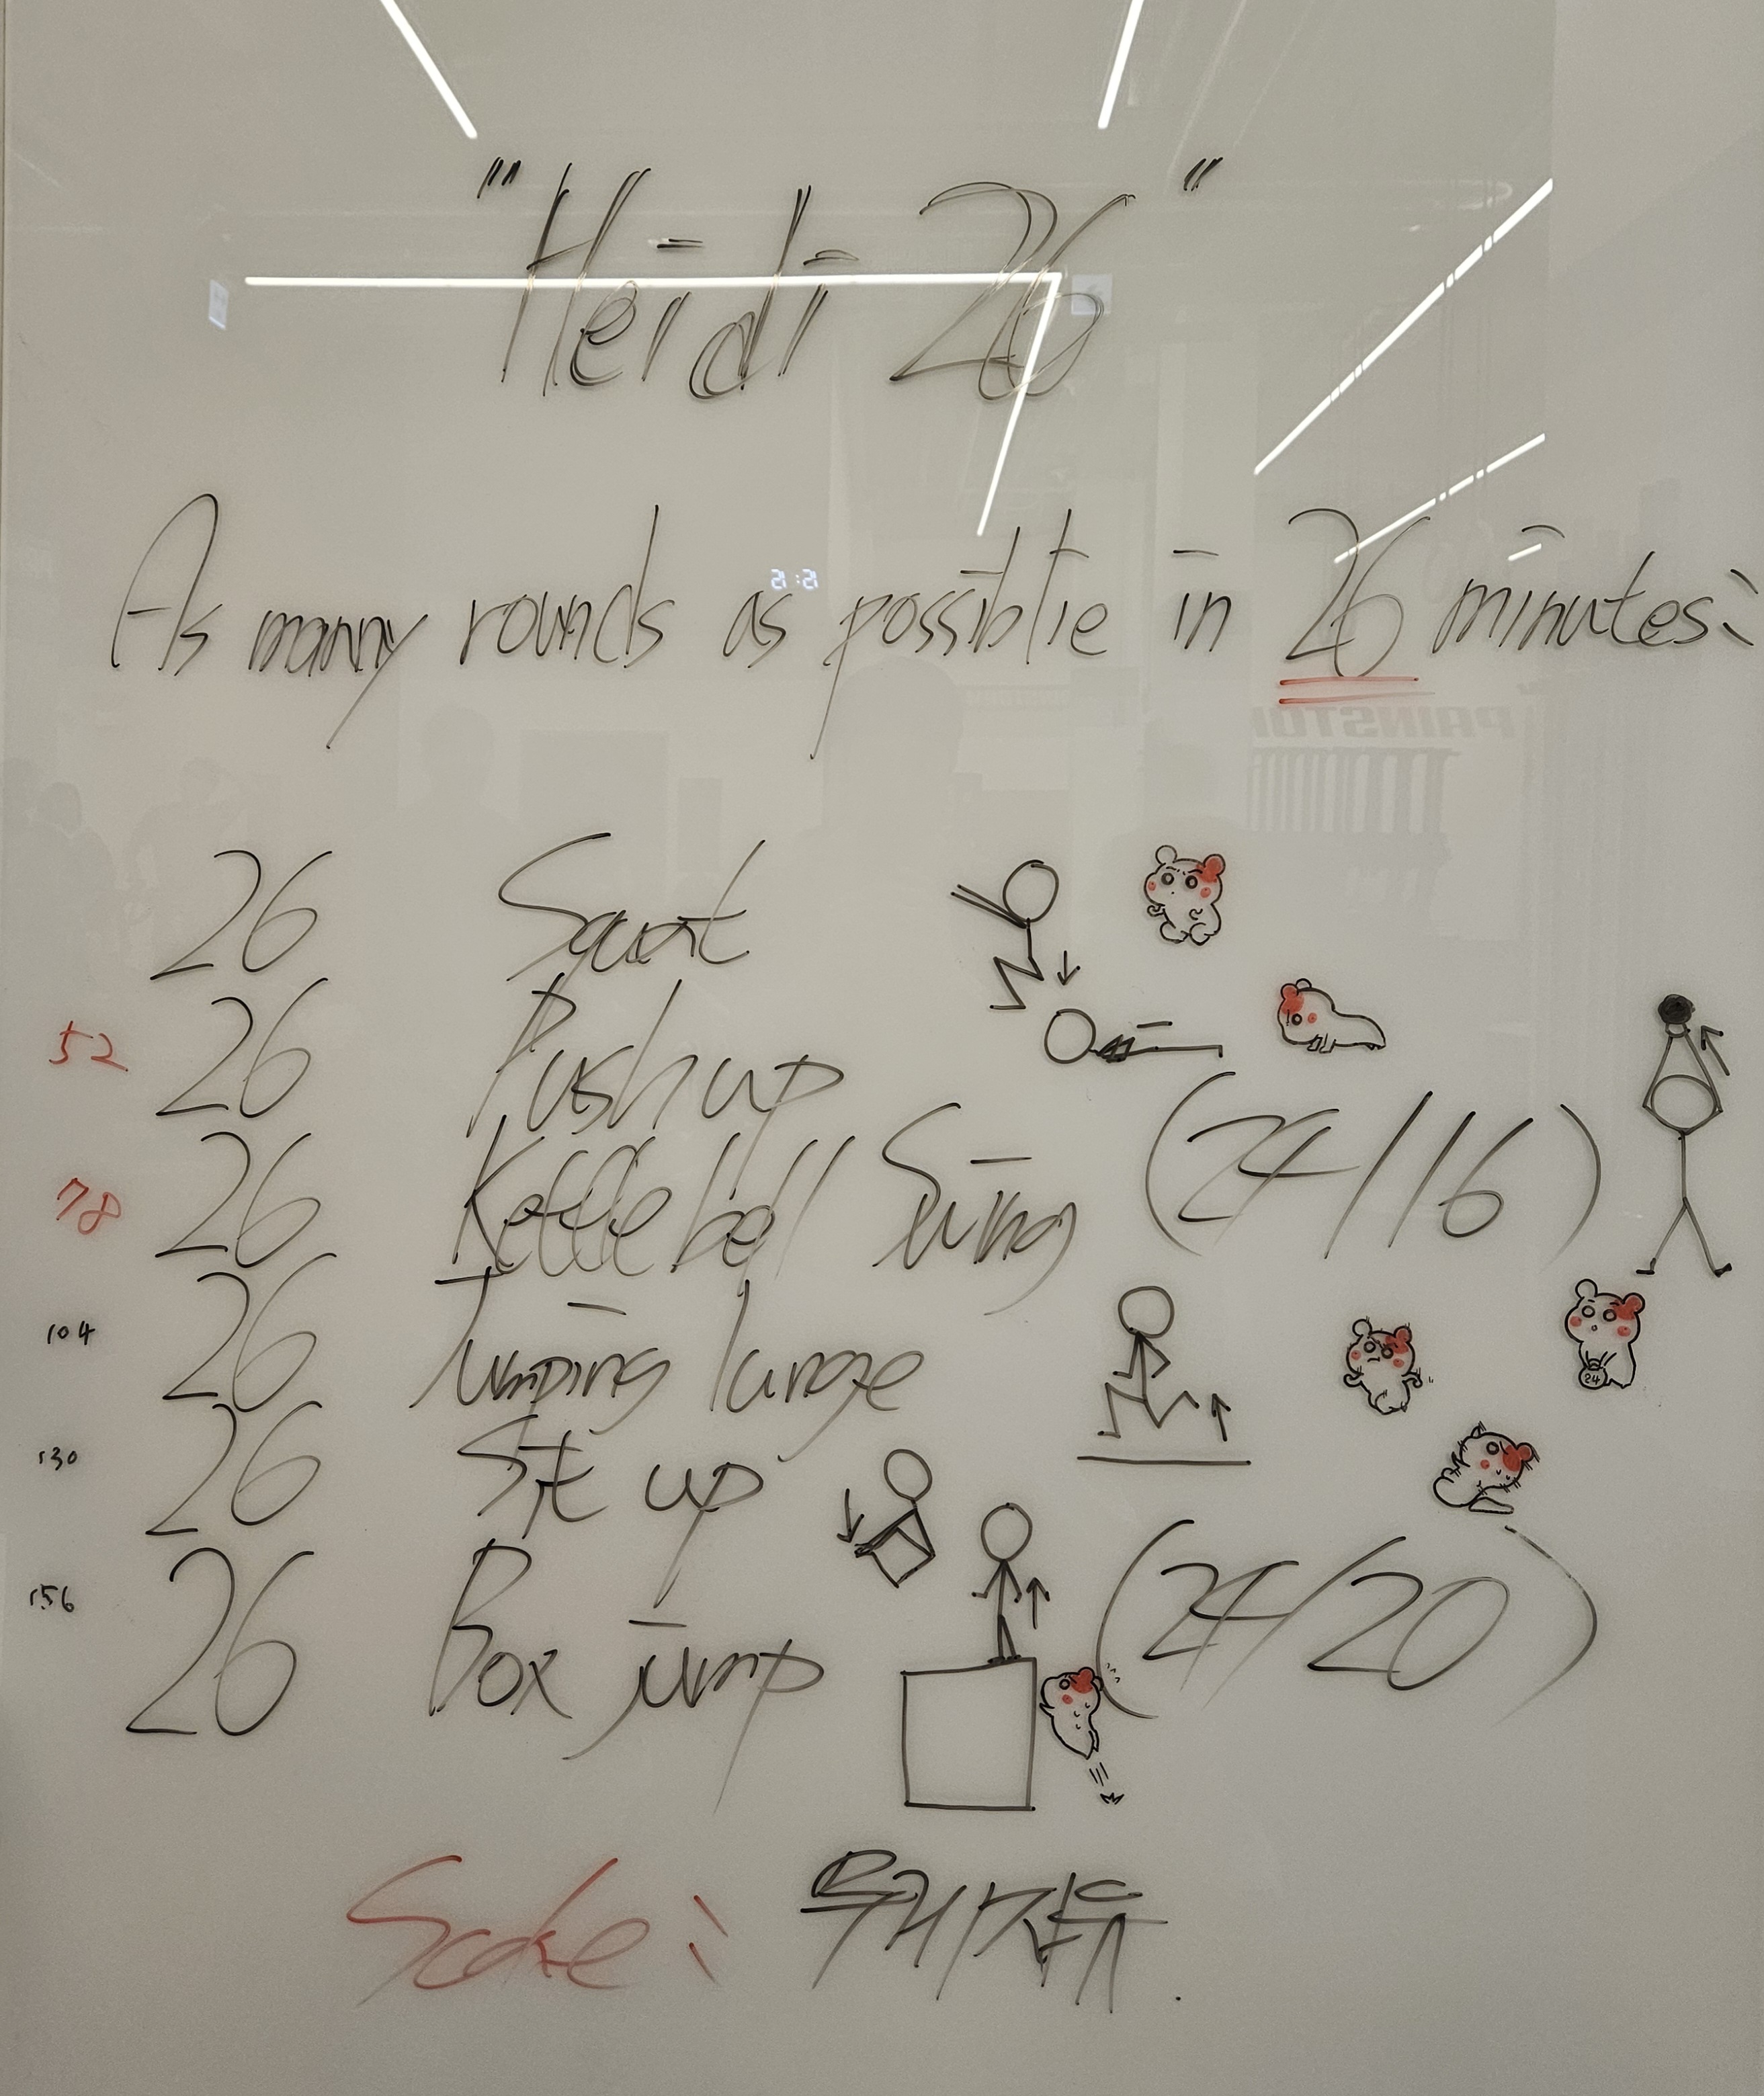 "Heidi 26"
As many rounds as possible in 26 minutes:
26 Squat
52 26 Push up
78 26 Kettlebell Swing (24/16)
104 26 Jumping lunge
24
130 26 Sit up
156 26 Box jump (24/20)
Scale: 무게자유.